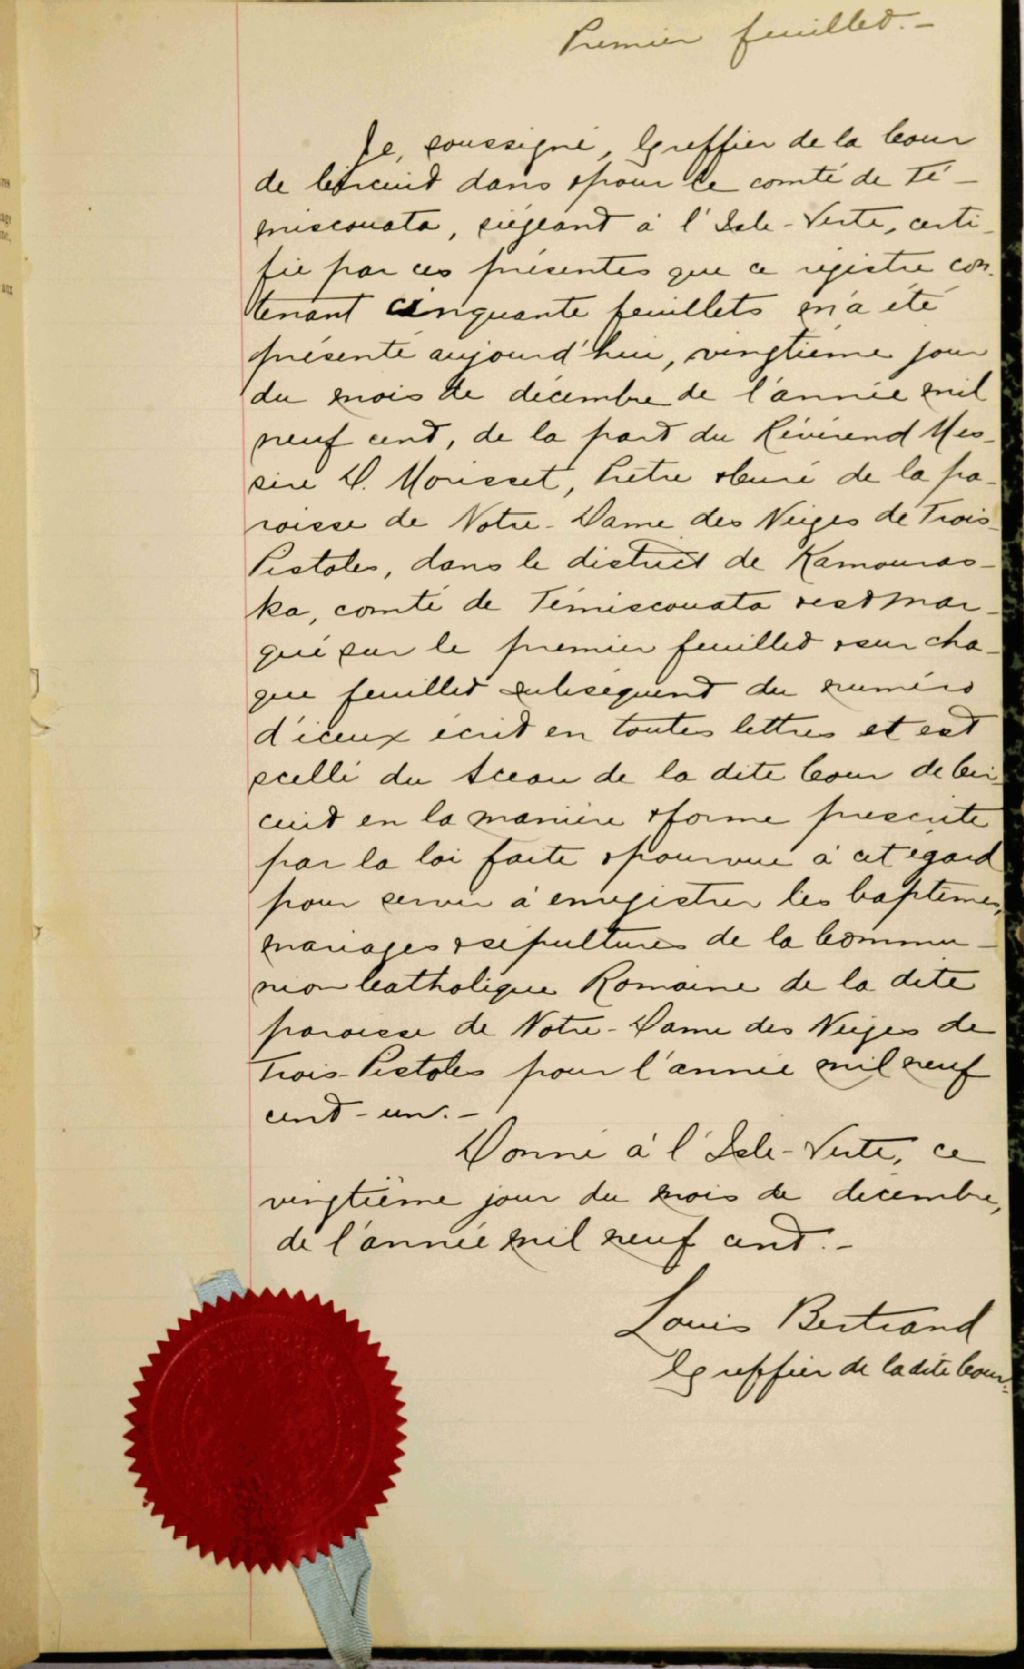 Premier feuillet.-
Je, soussigné, Greffier de la Cour
de Circuit dans & pour le comté de Té-
miscouata, siégeant à l'Isle-Verte, certi-
fie par ces présentes que ce régistre con-
tenant cinquante feuillets m'a été
présenté aujourd'hui, vingtième jour
du mois de décembre de l'année mil
neuf cent, de la part du Révérend Mes-
sire D. Morisset, Prêtre & Curé de la pa-
roisse de Notre-Dame des Neiges de Trois-
Pistoles, dans le district de Kamouras-
ka, comté de Témiscouata & est mar-
qué sur le premier feuillet & sur cha-
que feuillet subséquent du numéro
d'iceux écrit en toutes lettres et est
scellé du Sceau de la dite Cour de Cir-
cuit en la manière & forme prescrite
par la loi faite & pourvue à cet égard
pour servir à enregistrer les baptêmes,
mariages & sépultures de la Commu-
nion Catholique Romaine de la dite
paroisse de Notre-Dame des Neiges de
Trois-Pistoles pour l'année mil neuf
cent-un.-
Donné à l'Isle-Verte, ce
vingtième jour du mois de décembre,
de l'année mil neuf cent.-
Louis Bertrand
Greffier de la dite Cour.